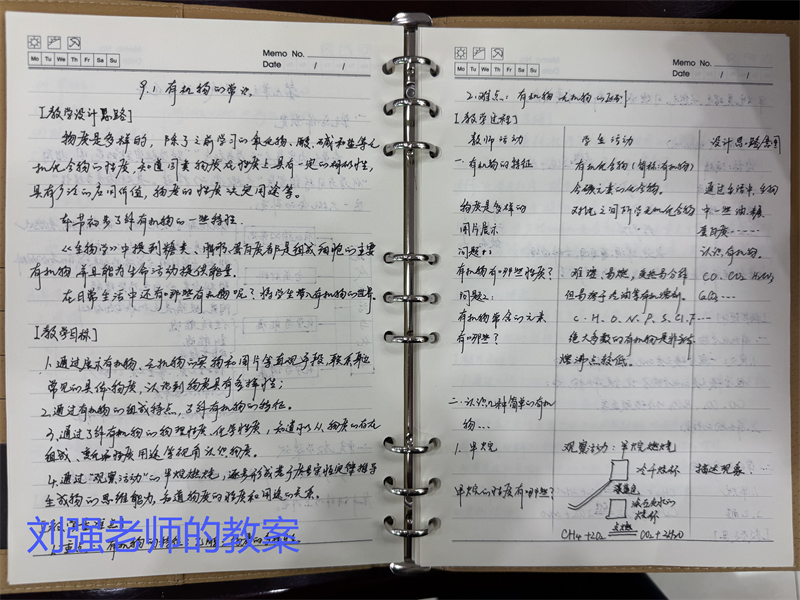 Memo No.
Mo Tu We Th Fr Sa Su
Date / /
9.1 有机物的常识
【教学设计思路】
物质是多样的,除了之前学习的氧化物、酸、碱和盐等无
机化合物的性质,知道同类物质在性质上具有一定的相似性,
具有多论的应用价值,物质的性质决定用途等。
本节初步了解有机物的一些特征.
《生物学》中提到糖类、脂肪、蛋白质都是组成细胞的主要
有机物,并且能为生命活动提供能量。
在日常生活中还有哪些有机物呢?将学生带入有机物的世界。
【教学目标】
1.通过展示有机物、无机物的实物和图片等直观手段,联系
常见的具体物质,认识到物质具有多样性;
2.通过有机物的组成特点,了解有机物的特征。
3.通过了解有机物的物理性质、化学性质,知道可以从物质的存在
组成、性质用途等视角认识物质。
4.通过“观察活动”的甲烷燃烧,逐步形成
生成物的思维能力,知道物质的性质和用途的关系。
刘强老师的教案
Memo No.
Mo Tu We Th Fr Sa Su
Date / /
2.难点:有机物、无机物的区别
【教学过程】
教师活动 学生活动 设计思路意图
一.有机物的特征 有机化合物(简称:有机物)
含碳元素的化合物。 通过生活中、生物
物质是多样的 对比之间所学无机化合物 中一些油、糖、
图片展示 蛋白质······
问题1: 认识有机物。
有机物有哪些性质? 难溶、易燃、受热易分解 CO、CO₂ H₂CO₃
问题2: 但易溶于汽油等有机溶剂。
有机物常含的元素 C、H、O、N、P、S、Cl、F···
有哪些? 绝大多数的有机物是非
熔沸点较低。
二.认识几种简单的有机
物...
1.甲烷 观察活动:甲烷燃烧
冷干烧杯 描述现象
甲烷的性质有哪些? 淡蓝色
石灰水的
烧杯
CH₄+2O₂ 点燃 CO₂+2H₂O